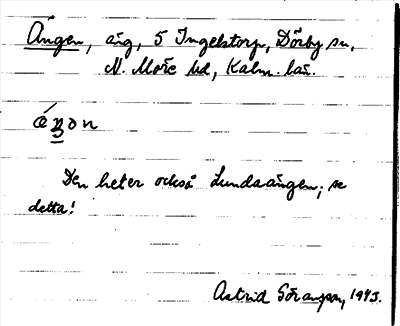 Ängen, äg, 5 Ingelstorp, Dörby sn,
N. Möre hd, Kalm. län.
ǽŋon
Den heter också Lundaängen; se
detta!
Astrid Göransson, 1943.